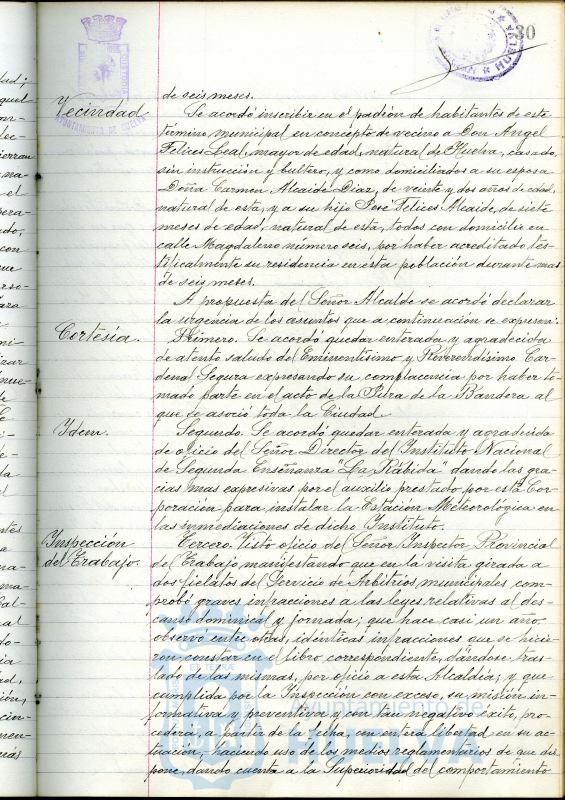 30
de seis meses.
Vecindad.
Se acordó inscribir en el padrón de habitantes de este
término municipal en concepto de vecino a Don Angel
Felices Leal, mayor de edad, natural de Huelva, casado,
sin instrucción y bultero, y como domiciliados a su esposa
Doña Carmen Alcaide Diaz, de veinte y dos años de edad,
natural de esta, y a su hijo José Felices Alcaide, de siete
meses de edad, natural de esta, todos con domicilio en
calle Magdaleno número seis, por haber acreditado tes-
tificalmente su residencia en esta población durante mas
de seis meses.
A propuesta del Señor Alcalde se acordó declarar
la urgencia de los asuntos que a continuación se expresan:
Cortesía.
Primero. Se acordó quedar enterada y agradecida
de atento saludo del Eminentísimo y Reverendísimo Car-
denal Segura expresando su complacencia por haber to-
mado parte en el acto de la Jura de la Bandera al
que se asoció toda la Ciudad.
Idem.
Segundo. Se acordó quedar enterada y agradecida
de oficio del Señor Director del Instituto Nacional
de Segunda Enseñanza "La Rábida" dando las gra-
cias mas expresivas por el auxilio prestado por esta Cor-
poración para instalar la Estación Meteorológica en
las inmediaciones de dicho Instituto.
Inspección
del Trabajo.
Tercero. Visto oficio del Señor Inspector Provincial
del Trabajo manifestando que en la visita girada a
dos fielatos del Servicio de Arbitrios municipales com-
probó graves infracciones a las leyes relativas al des-
canso dominical y jornada; que hace casi un año
observó entre otras, idénticas infracciones que se hicie-
ron constar en el libro correspondiente, dándose tras-
lado de las mismas, por oficio a esta Alcaldía; y que
cumplida por la Inspección con exceso, su misión in-
formativa y preventiva y con tan negativo éxito, pro-
cederá, a partir de la fecha, con entera libertad en su ac-
tuación, haciendo uso de los medios reglamentarios de que dis-
pone, dando cuenta a la Superioridad del comportamiento
Ayuntamiento de
HUELVA